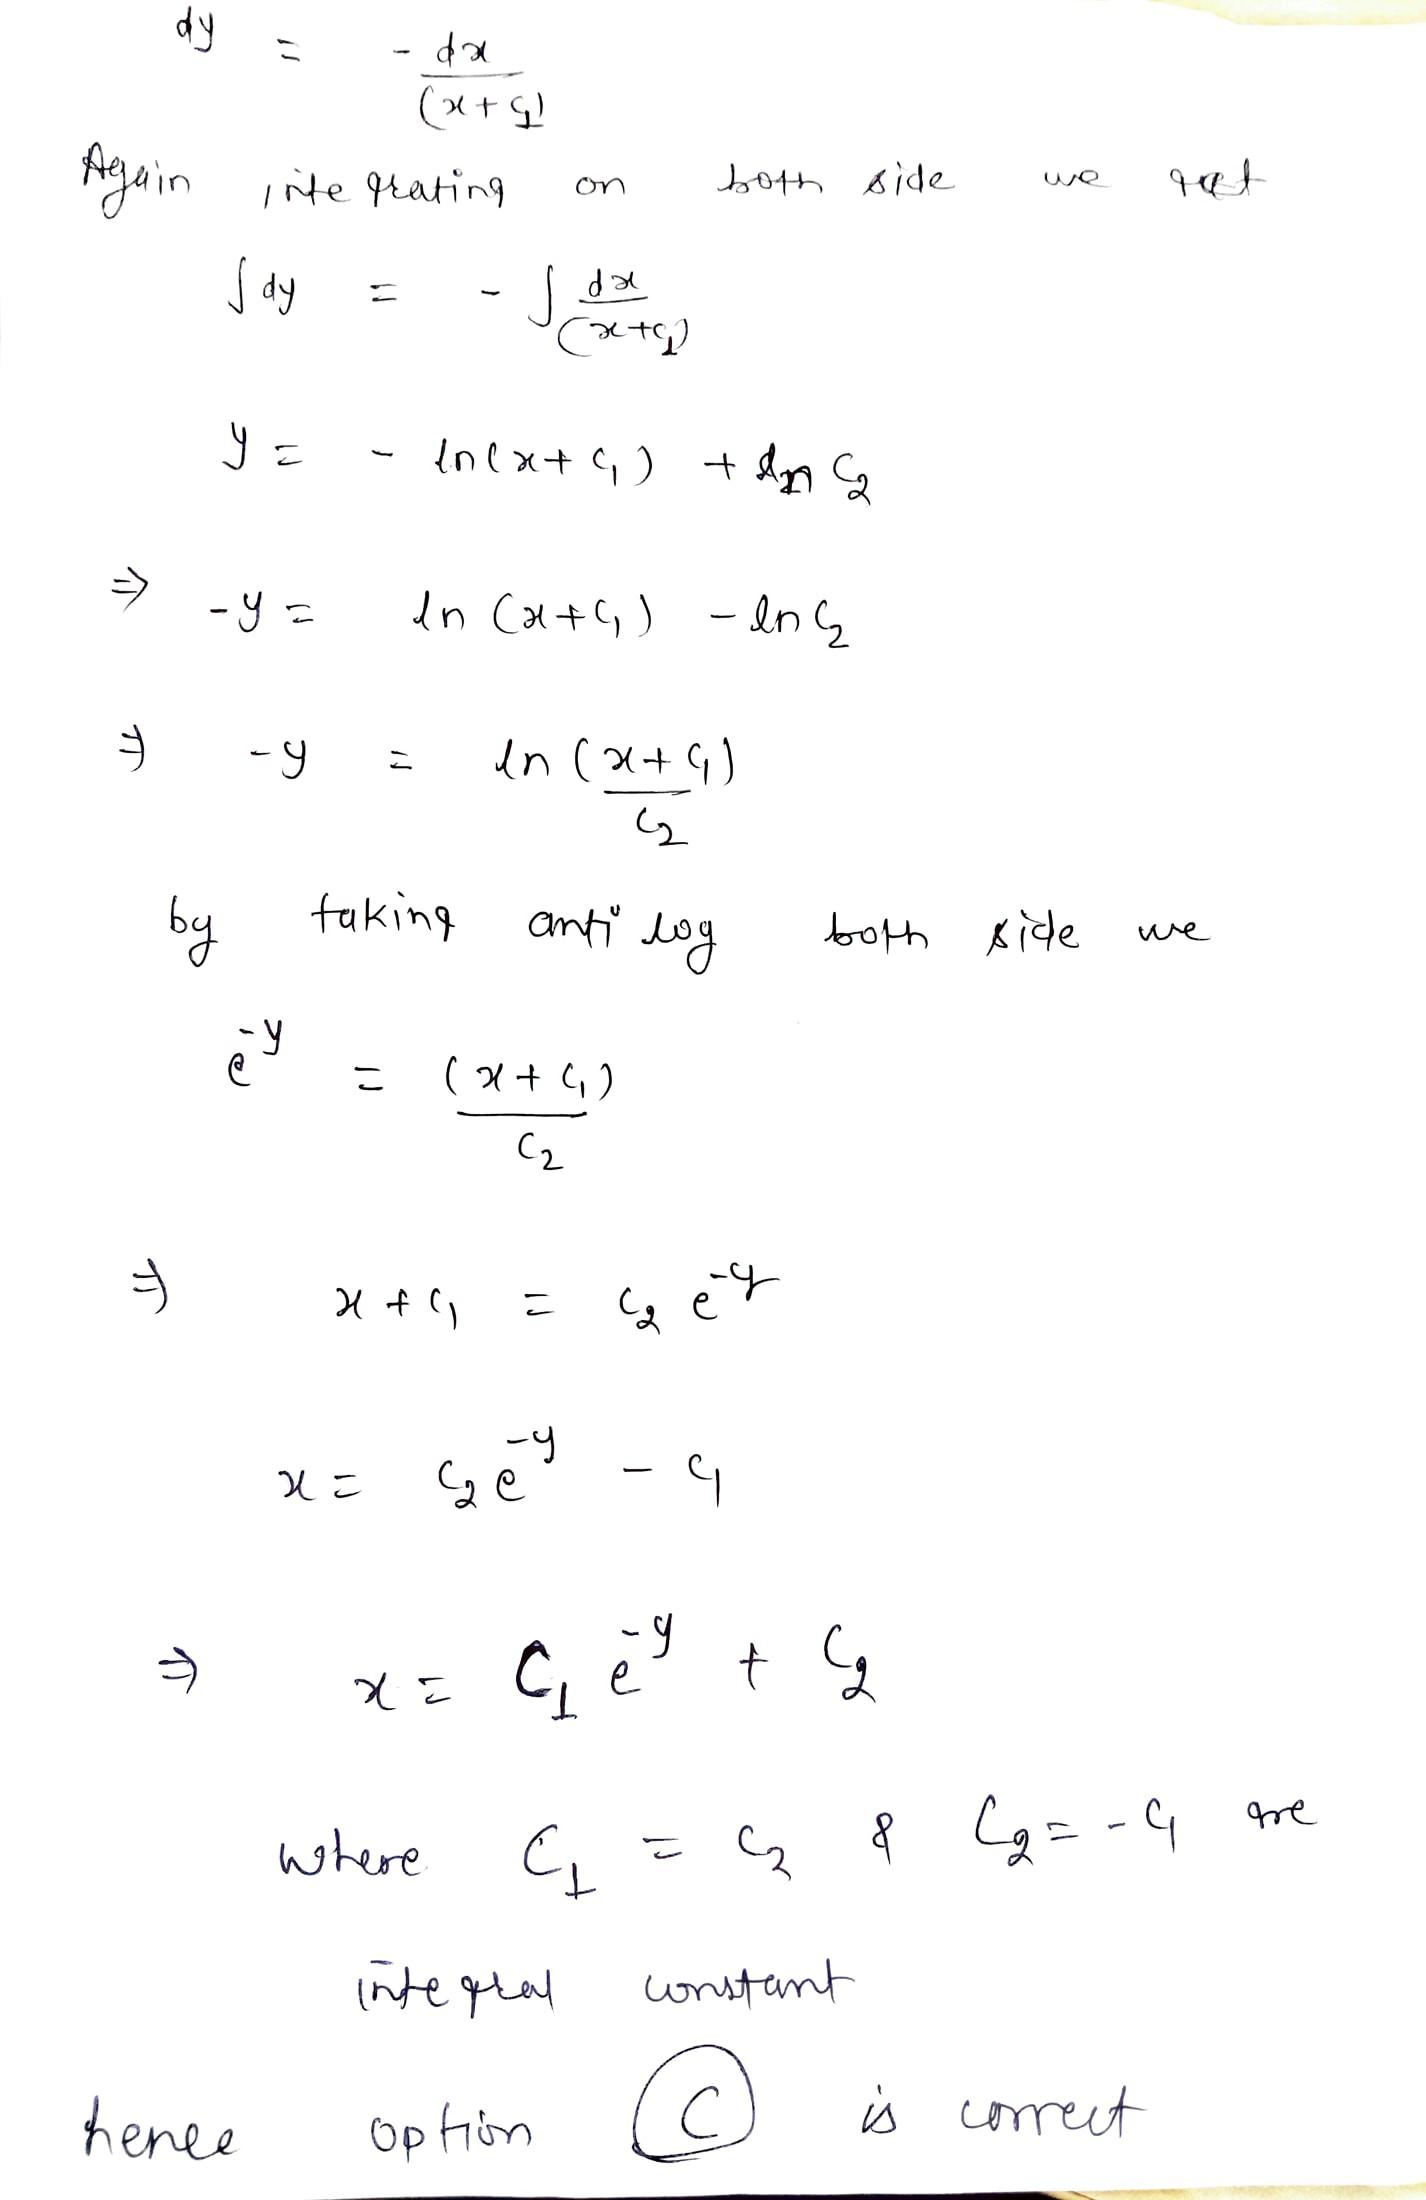 dy = - dx
(x+c1)
Again integrating on both side we get
∫dy = - ∫ dx
(x+c1)
y = - ln(x+c1) + ln c2
⇒ -y = ln (x+c1) - ln c2
⇒ -y = ln (x+c1)
c2
by taking anti log both side we
e^-y = (x+c1)
c2
⇒ x+c1 = c2 e^-y
x = c2 e^-y - c1
⇒ x = C1 e^-y + C2
where C1 = c2 & C2 = -c1 are
integral constant
hence option C is correct